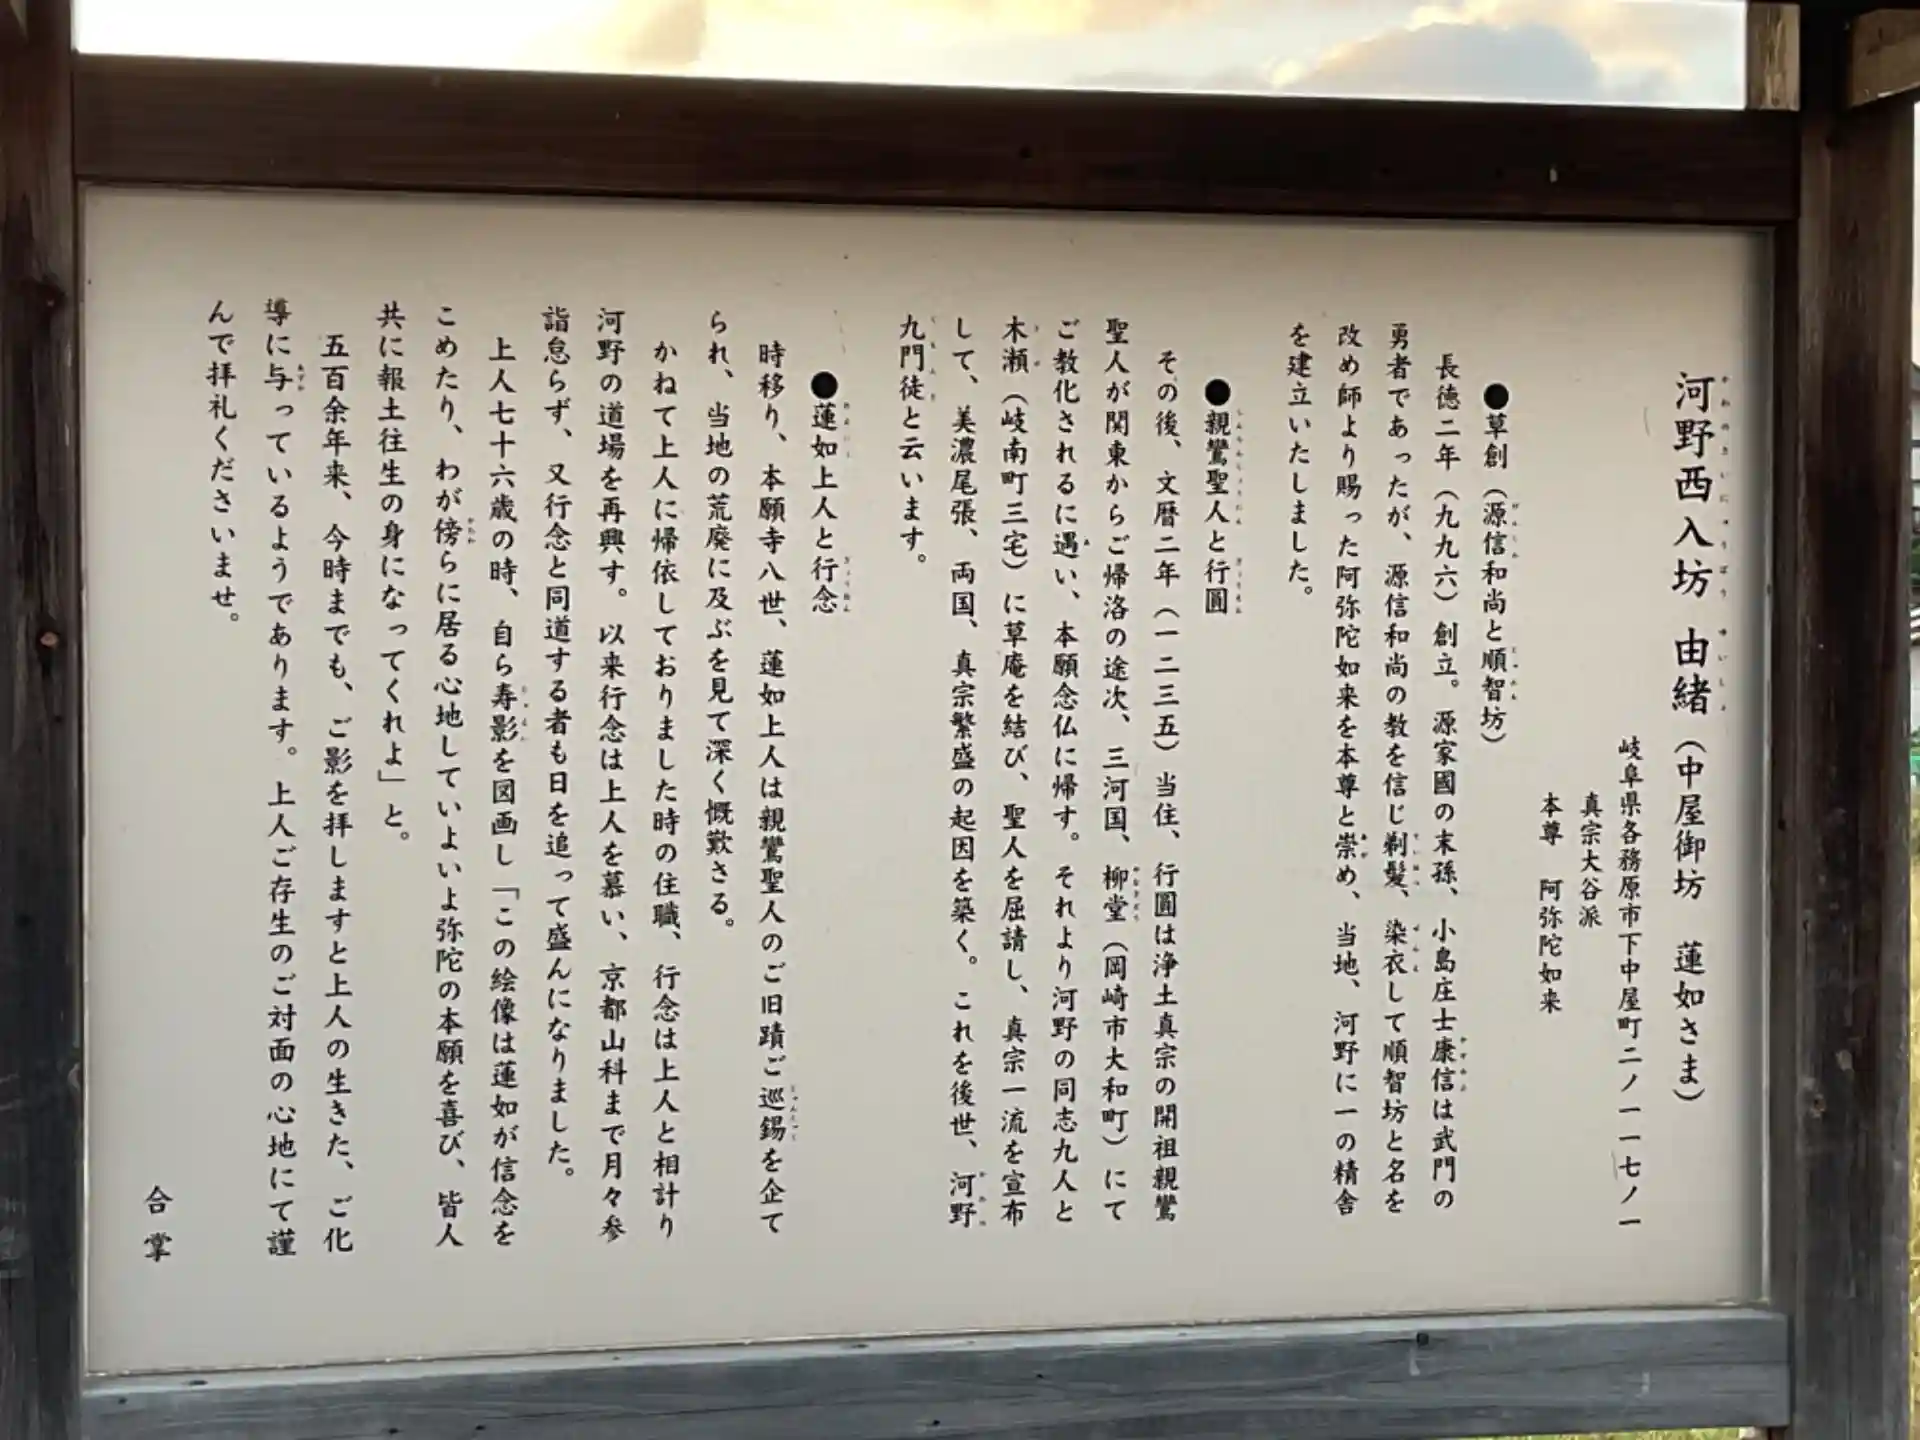 河野西入坊 由緒（中屋御坊 蓮如さま）
岐阜県各務原市下中屋町二ノ一一七ノ一
真宗大谷派
本尊 阿弥陀如来
●草創（源信和尚と順智坊）
長徳二年（九九六）創立。源家國の末孫、小島庄士康信は武門の
勇者であったが、源信和尚の教を信じ剃髪、染衣して順智坊と名を
改め師より賜った阿弥陀如来を本尊と崇め、当地、河野に一の精舎
を建立いたしました。
●親鸞聖人と行圓
その後、文暦二年（一二三五）当住、行圓は浄土真宗の開祖親鸞
聖人が関東からご帰洛の途次、三河国、柳堂（岡崎市大和町）にて
ご教化されるに遇い、本願念仏に帰す。それより河野の同志九人と
木瀬（岐南町三宅）に草庵を結び、聖人を屈請し、真宗一流を宣布
して、美濃尾張、両国、真宗繁盛の起因を築く。これを後世、河野
九門徒と云います。
●蓮如上人と行念
時移り、本願寺八世、蓮如上人は親鸞聖人のご旧蹟ご巡錫を企て
られ、当地の荒廃に及ぶを見て深く慨歎さる。
かねて上人に帰依しておりました時の住職、行念は上人と相計り
河野の道場を再興す。以来行念は上人を慕い、京都山科まで月々参
詣怠らず、又行念と同道する者も日を追って盛んになりました。
上人七十六歳の時、自ら寿影を図画し「この絵像は蓮如が信念を
こめたり、わが傍らに居る心地していよいよ弥陀の本願を喜び、皆人
共に報土往生の身になってくれよ」と。
五百余年来、今時までも、ご影を拝しますと上人の生きた、ご化
導に与っているようであります。上人ご存生のご対面の心地にて謹
んで拝礼くださいませ。
合掌